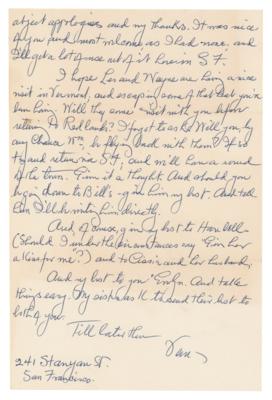 abject apologies and my thanks. It was nice
of you and most welcome as I had none, and
I'll get a lot of use out of it here in S F.
I hope Les and Wayne are having a nice
visit in Vermont, and escaping some of that heat you've
been having. Will they some visit with you before
returning to Redlands? I forgot to ask. Will you, by
any chance, be flying out with them? If so
try and return via S F, and we'll have a round
of the town. Give it a thought. And should you
down to Bill's - give him my best. And tell
him I'll be writing him directly.
And of course, give my best to
(Should I under the circumstances say "Give her
a kiss for me"?) and to Cissie and her husband.
And my best to you Evelyn. And take
things easy. My sister has me send their best to
both of you.
Till later then
Van
241 Stanyan St.
San Francisco.